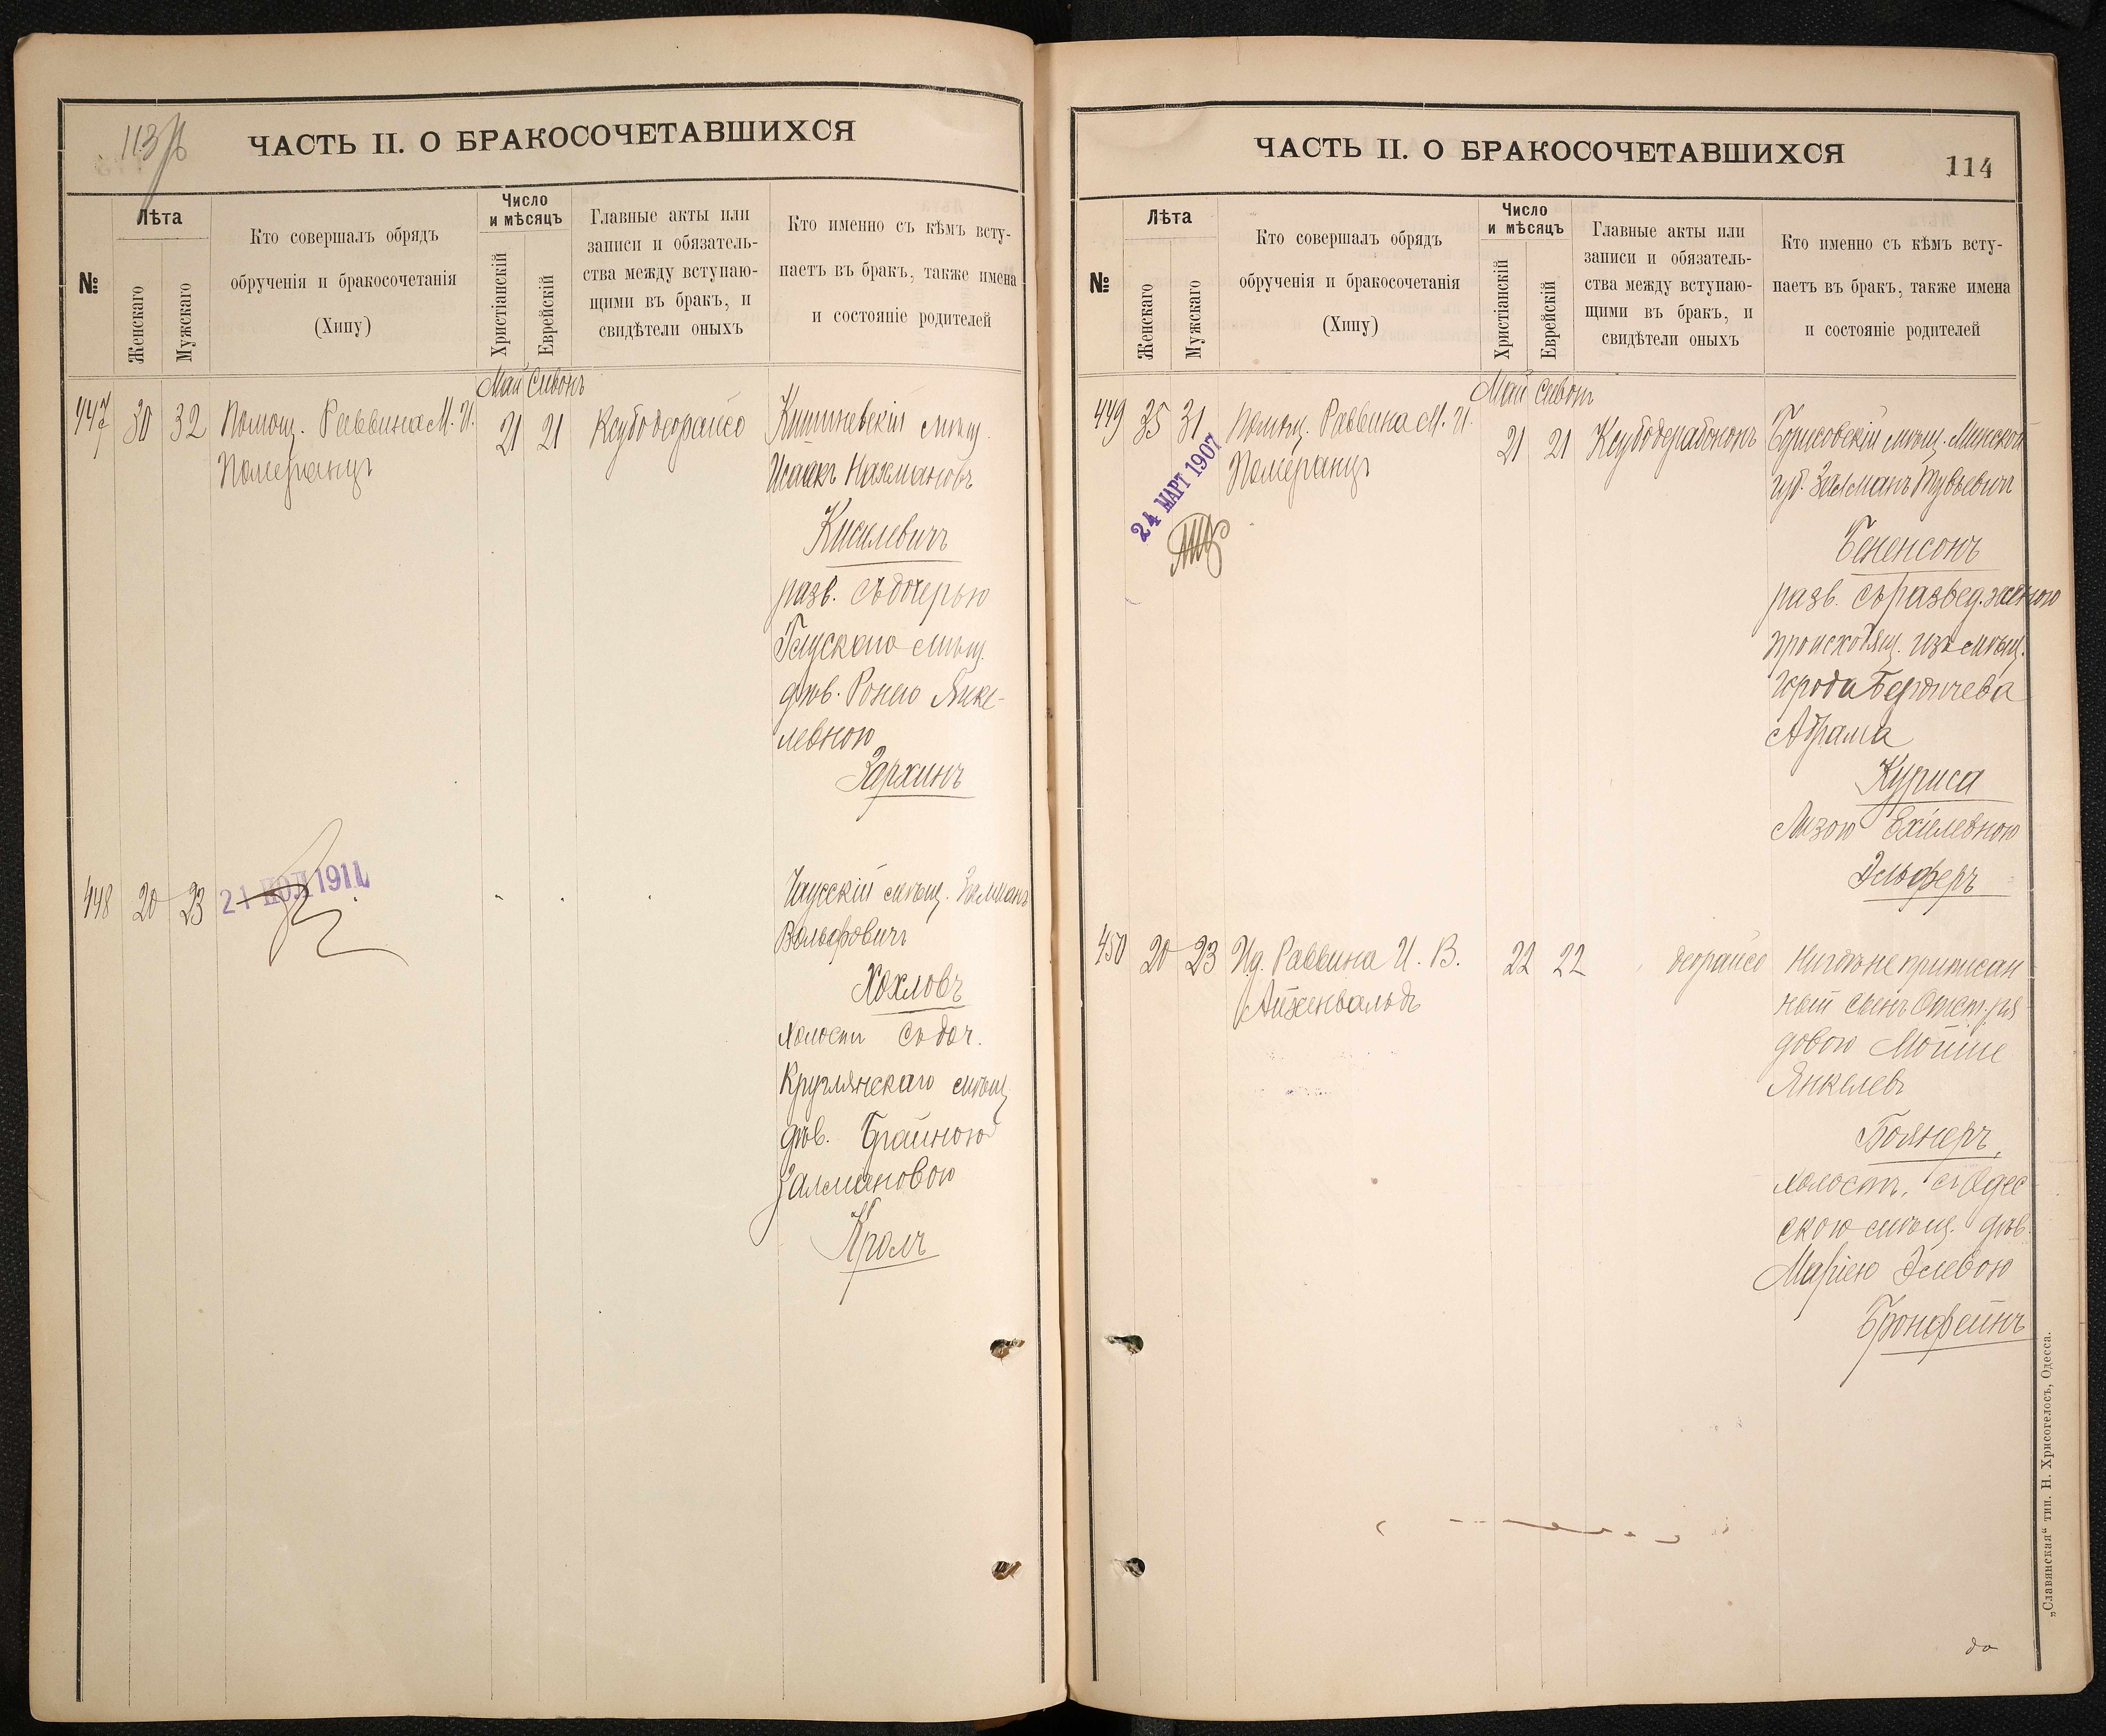 113 об
ЧАСТЬ II. О БРАКОСОЧЕТАВШИХСЯ
№
Лѣта
Женскаго
Мужскаго
Кто совершалъ обрядъ
обрученія и бракосочетанія
(Хипу)
Число
и мѣсяцъ
Христіанскій
Еврейскій
Главные акты или
записи и обязатель-
ства между вступаю-
щими въ бракъ, и
свидѣтели оныхъ
Кто именно съ кѣмъ всту-
паетъ въ бракъ, также имена
и состояніе родителей
Май Сивонъ
447 30 32 Помощ. Раввина М. И.
Померанцъ
21 21 Ксубо деорайсо
Кишиневскій мѣщ.
Исаакъ Нахмановъ
Киселевичъ
разв. съ дочерью
Глускаго мѣщ.
дѣв. Ронею Янке-
левною
Зархинъ
448 20 23
21 ІЮЛ 1911
Чаусскій мѣщ. Залманъ
Вольфовичъ
Хохловъ
холост съ доч.
Круглянскаго мѣщ.
дѣв. Брайною
Залмановою
Кролъ
ЧАСТЬ II. О БРАКОСОЧЕТАВШИХСЯ
114
№
Лѣта
Женскаго
Мужскаго
Кто совершалъ обрядъ
обрученія и бракосочетанія
(Хипу)
Число
и мѣсяцъ
Христіанскій
Еврейскій
Главные акты или
записи и обязатель-
ства между вступаю-
щими въ бракъ, и
свидѣтели оныхъ
Кто именно съ кѣмъ всту-
паетъ въ бракъ, также имена
и состояніе родителей
Май Сивонъ
449 35 31 Помощ. Раввина М. И.
Померанцъ
24 МАРТ 1907
21 21 Ксубодерабононъ
Борисовскій мѣщ. Минской
губ. Залманъ Тувьевичъ
Бененсонъ
разв. съ развед. женою
происходящ. изъ мѣщ.
города Бердичева
Абрама
Куриса
Лизою Ехілевною
Эльферъ
450 20 23 Ид. Раввина И. В.
Айзенвальдъ
22 22 деорайсо
Нигдѣ не приписан
ный сынъ Отст. ря
доваго Мойше
Янкелевъ
Боянеръ,
холостъ, съ Одес
скою мѣщ. дѣв.
Маріею Элевою
Бронфейнъ
до
„Славянская“ тип. Н. Хрисогелосъ, Одесса.